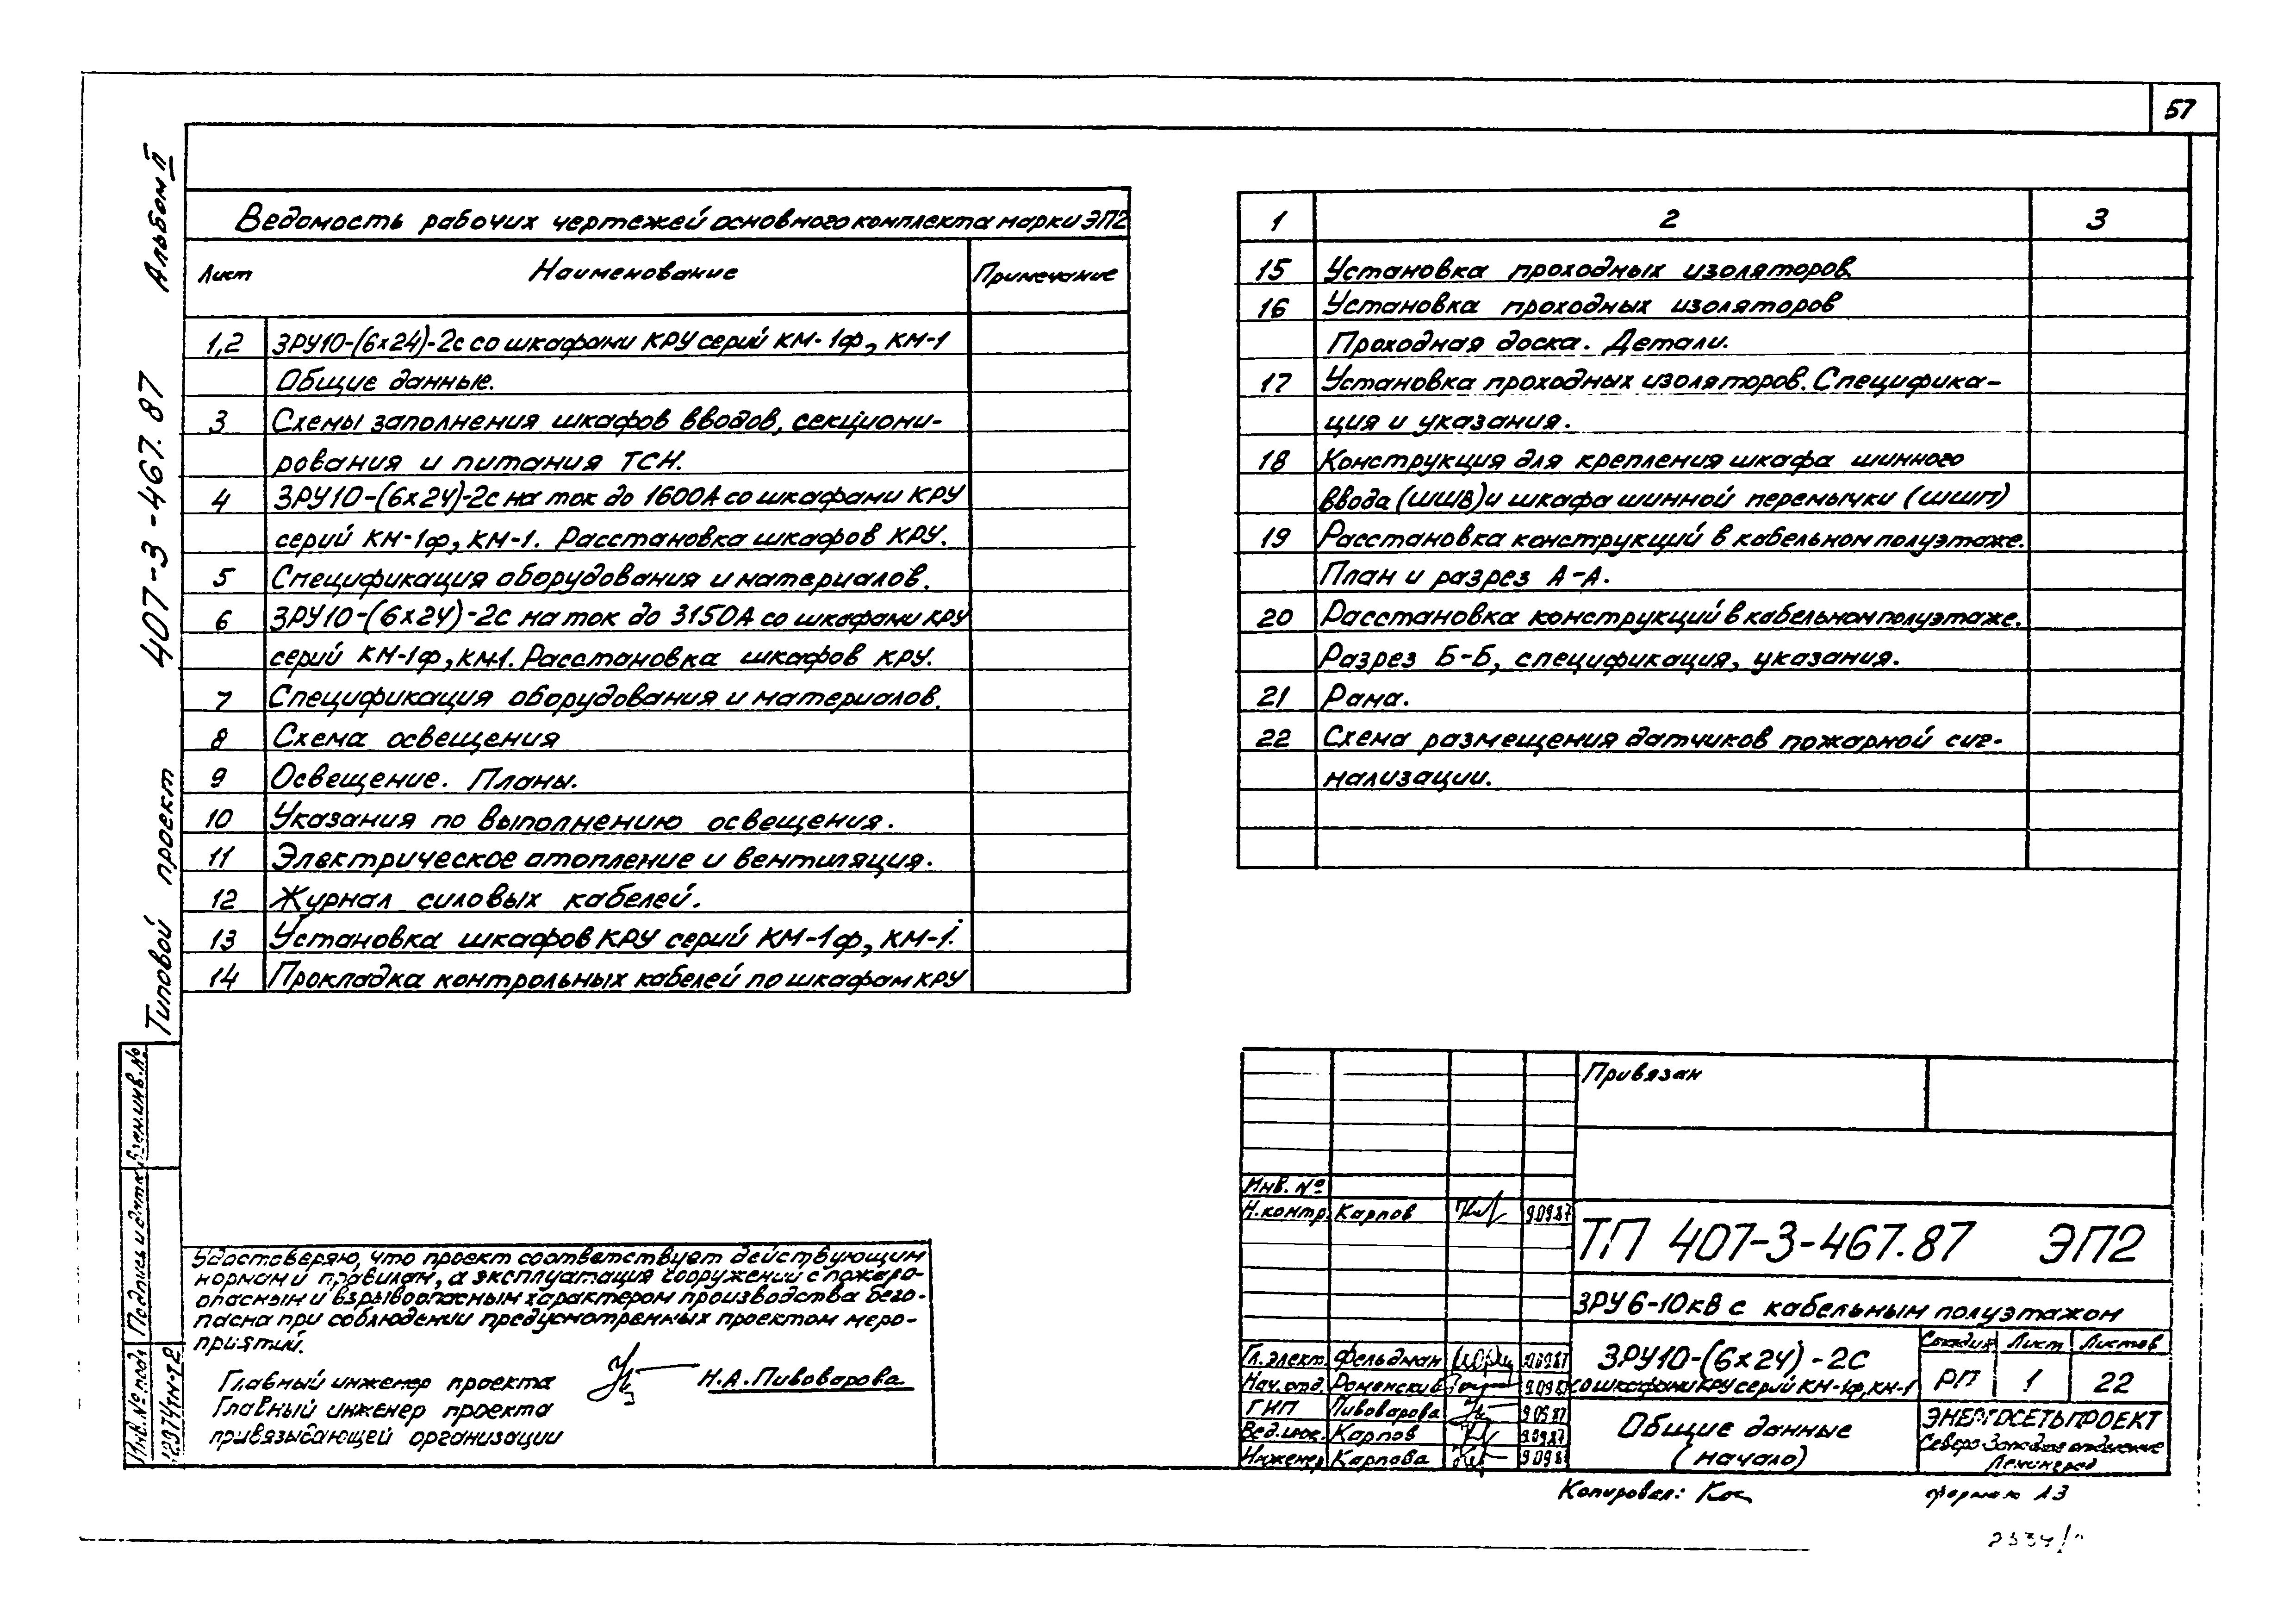 57
Альбом II
407-3-467.87
Типовой проект
Ведомость рабочих чертежей основного комплекта марки ЭП2
Лист Наименование Примечание
1,2 ЗРУ10-(6х24)-2с со шкафами КРУ серий КМ-1ф, КМ-1
Общие данные.
3 Схемы заполнения шкафов вводов, секциони-
рования и питания ТСН.
4 ЗРУ10-(6х24)-2с на ток до 1600А со шкафами КРУ
серий КМ-1ф, КМ-1. Расстановка шкафов КРУ.
5 Спецификация оборудования и материалов.
6 ЗРУ10-(6х24)-2с на ток до 3150А со шкафами КРУ
серий КМ-1ф, КМ-1. Расстановка шкафов КРУ.
7 Спецификация оборудования и материалов.
8 Схема освещения
9 Освещение. Планы.
10 Указания по выполнению освещения.
11 Электрическое отопление и вентиляция.
12 Журнал силовых кабелей.
13 Установка шкафов КРУ серий КМ-1ф, КМ-1.
14 Прокладка контрольных кабелей по шкафам КРУ
1 2 3
15 Установка проходных изоляторов
16 Установка проходных изоляторов
Проходная доска. Детали.
17 Установка проходных изоляторов. Специфика-
ция и указания.
18 Конструкция для крепления шкафа шинного
ввода (ШШВ) и шкафа шинной перемычки (ШШП)
19 Расстановка конструкций в кабельном полуэтаже.
План и разрез А-А.
20 Расстановка конструкций в кабельном полуэтаже.
Разрез Б-Б, спецификация, указания.
21 Рама.
22 Схема размещения датчиков пожарной сиг-
нализации.
Удостоверяю, что проект соответствует действующим
нормам и правилам, а эксплуатация сооружений с пожаро-
опасным и взрывоопасным характером производства безо-
пасна при соблюдении предусмотренных проектом меро-
приятий.
Главный инженер проекта Н.А.Пивоварова
Главный инженер проекта
привязывающей организации
Инв.№ подл. Подпись и дата Взам.инв.№
Привязан
Инв. №
Н.контр. Карпов 9.09.87
ТП 407-3-467.87 ЭП2
ЗРУ 6-10кВ с кабельным полуэтажом
Гл.элект. Фельдман
Нач.отд. Роменский 9.09.87
ГИП Пивоварова 9.09.87
Вед.инж. Карпов 9.09.87
Инженер Карпова 9.09.87
ЗРУ10-(6х24)-2С
со шкафами КРУ серий КМ-1ф, КМ-1
Стадия Лист Листов
РП 1 22
Общие данные
(начало)
ЭНЕРГОСЕТЬПРОЕКТ
Северо-Западное отделение
Ленинград
Копировал: Формат А3